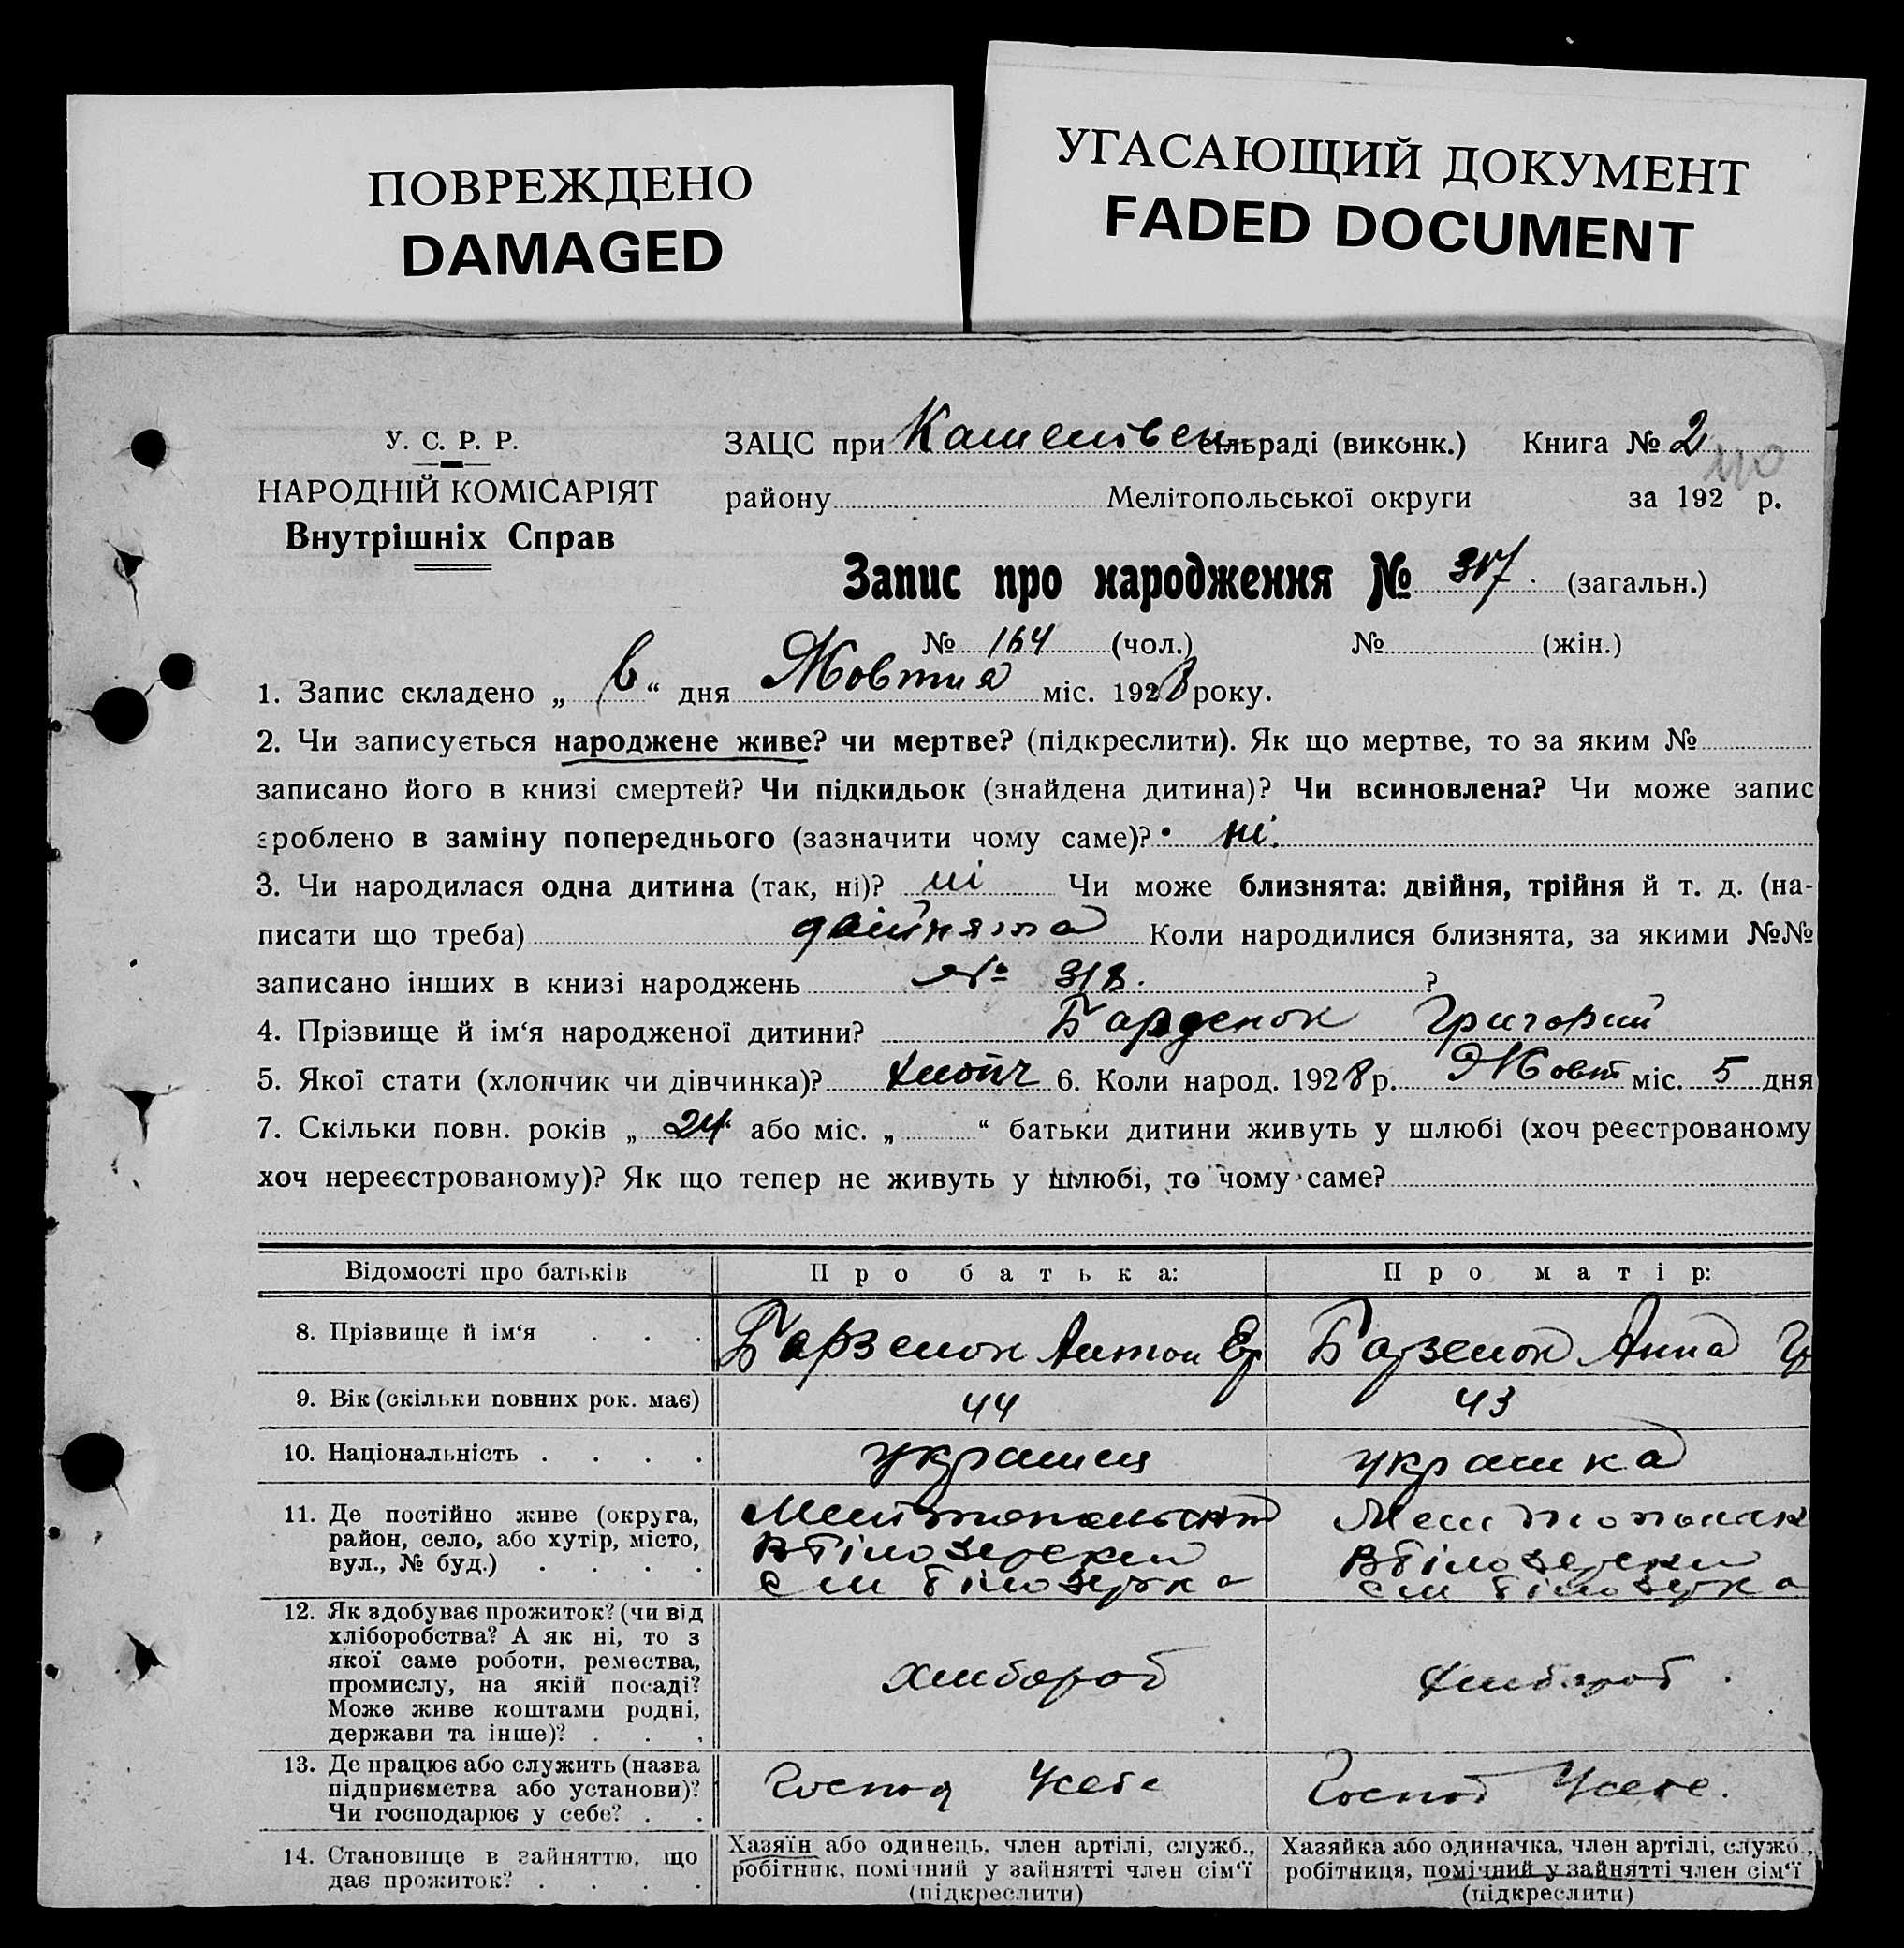 ПОВРЕЖДЕНО
DAMAGED
УГАСАЮЩИЙ ДОКУМЕНТ
FADED DOCUMENT
У. С. Р. Р.
НАРОДНІЙ КОМІСАРІЯТ
Внутрішніх Справ
ЗАЦС при сільраді (виконк.) Книга № 2
району Мелітопольської округи за 192 р.
Запис про народження № 317. (загальн.)
№ 164 (чол.) № (жін.)
1. Запис складено „ 6 “ дня Жовтня міс. 1928 року.
2. Чи записується народжене живе? чи мертве? (підкреслити). Як що мертве, то за яким №
записано його в книзі смертей? Чи підкидьок (знайдена дитина)? Чи всиновлена? Чи може запис
зроблено в заміну попереднього (зазначити чому саме)? ні.
3. Чи народилася одна дитина (так, ні)? ні Чи може близнята: двійня, трійня й т. д. (на-
писати що треба) двійнята Коли народилися близнята, за якими №№
записано інших в книзі народжень № 318. ?
4. Прізвище й ім‘я народженої дитини? Барзенок Григорий
5. Якої стати (хлопчик чи дівчинка)? хлопч 6. Коли народ. 1928 р. Жовт міс. 5 дня
7. Скільки повн. років „ 24 “ або міс. „ “ батьки дитини живуть у шлюбі (хоч реєстрованому
хоч нереєстрованому)? Як що тепер не живуть у шлюбі, то чому саме?
Відомості про батьків Про батька: Про матір:
8. Прізвище й ім‘я . . . Барзенок Антон Ер Барзенок Анна Гр
9. Вік (скільки повних рок. має) 44 43
10. Національність . . . . українец українка
11. Де постійно живе (округа,
район, село, або хутір, місто,
вул., № буд.) . . . .
Мелітопольськ
В Білозерский
см Білозерка
Мелітопольск
В Білозерски
см Білозерка
12. Як здобуває прожиток? (чи від
хліборобства? А як ні, то з
якої саме роботи, ремества,
промислу, на якій посаді?
Може живе коштами родні,
держави та інше)? . . .
хлібороб
хлібороб .
13. Де працює або служить (назва
підприємства або установи)?
Чи господарює у себе? . .
Господ Усебе
Господ Усебе.
14. Становище в зайняттю, що
дає прожиток? . . . .
Хазяїн або одинець, член артілі, служб.,
робітник, помічний у зайнятті член сім‘ї
(підкреслити)
Хазяйка або одиначка, член артілі, служб.,
робітниця, помічний у зайнятті член сім‘ї
(підкреслити)